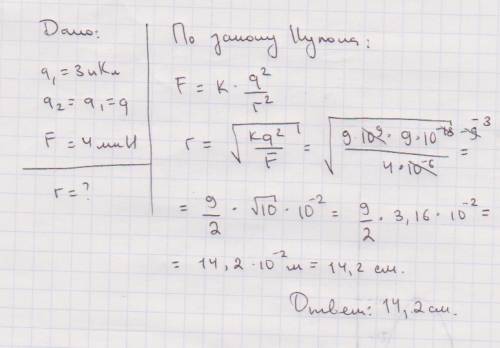 Дано:
q₁ = 3 нКл
q₂ = q₁ = q
F = 4 мкН
r = ?
По закону Кулона:
F = k · q²/r²
r = √(kq²/F) = √(9·10⁹ · 9·10⁻¹⁸ / 4·10⁻⁶) =
= 9/2 · √10 · 10⁻² = 9/2 · 3,16 · 10⁻² =
= 14,2 · 10⁻² м = 14,2 см.
Ответ: 14,2 см.